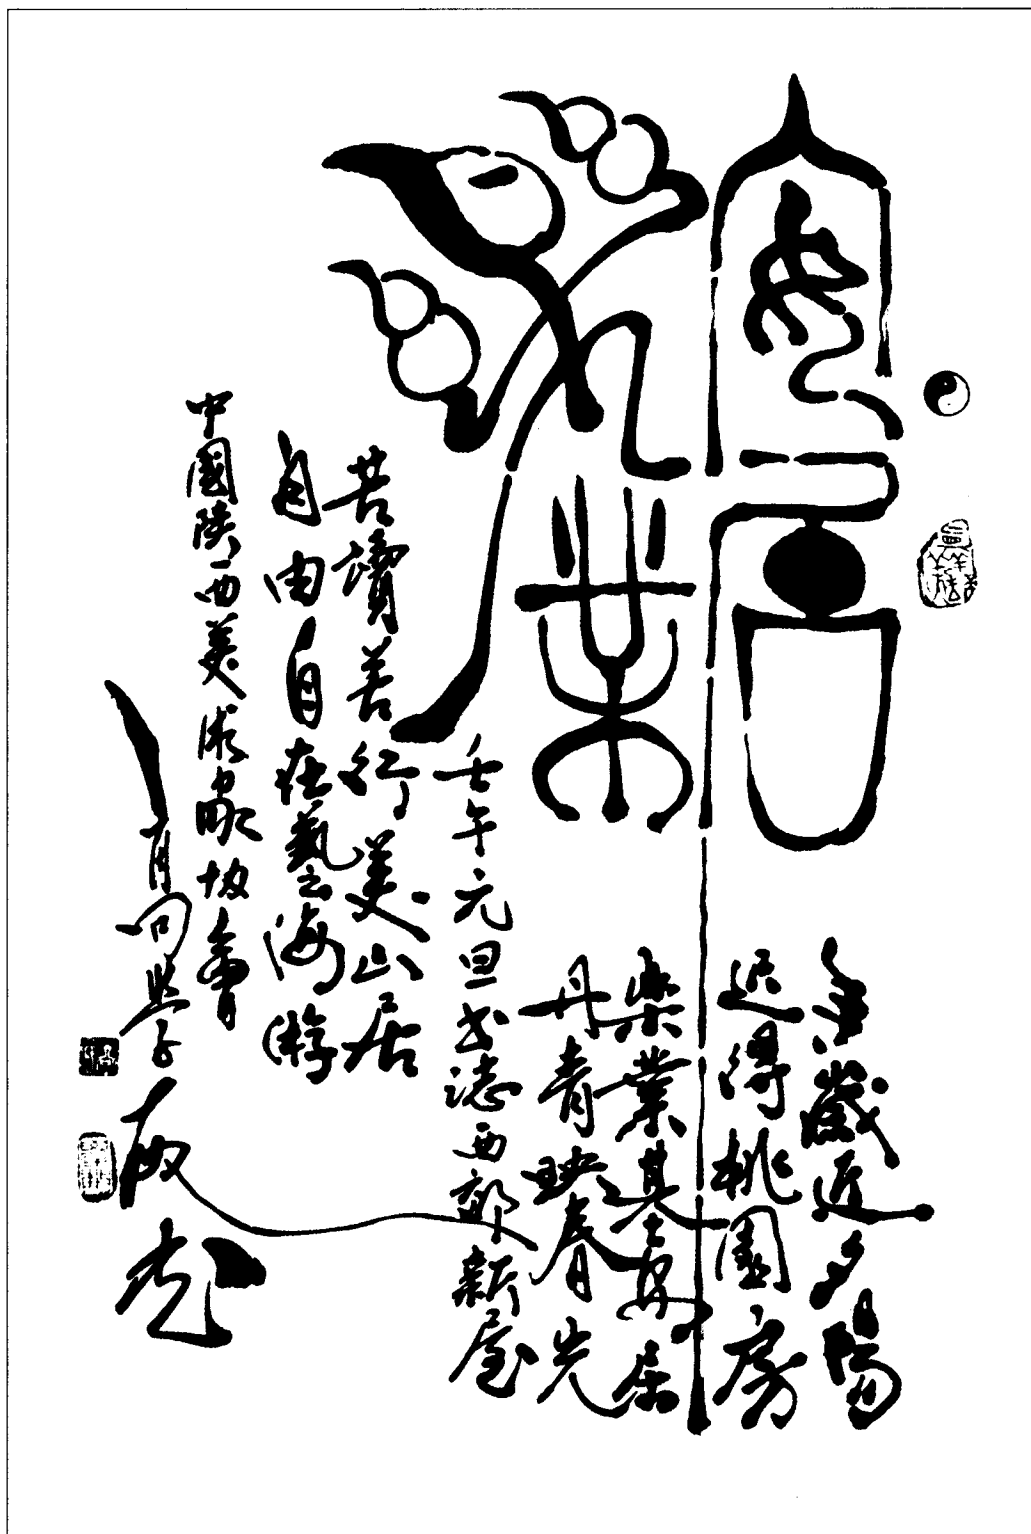 安居
樂業
年歲近夕陽
迟得桃園房
樂業其安居
丹青映春光
壬午元旦书誌西郊新屋
苦讀苦行美山居
自由自在藝海游
中國陝西美術家協會